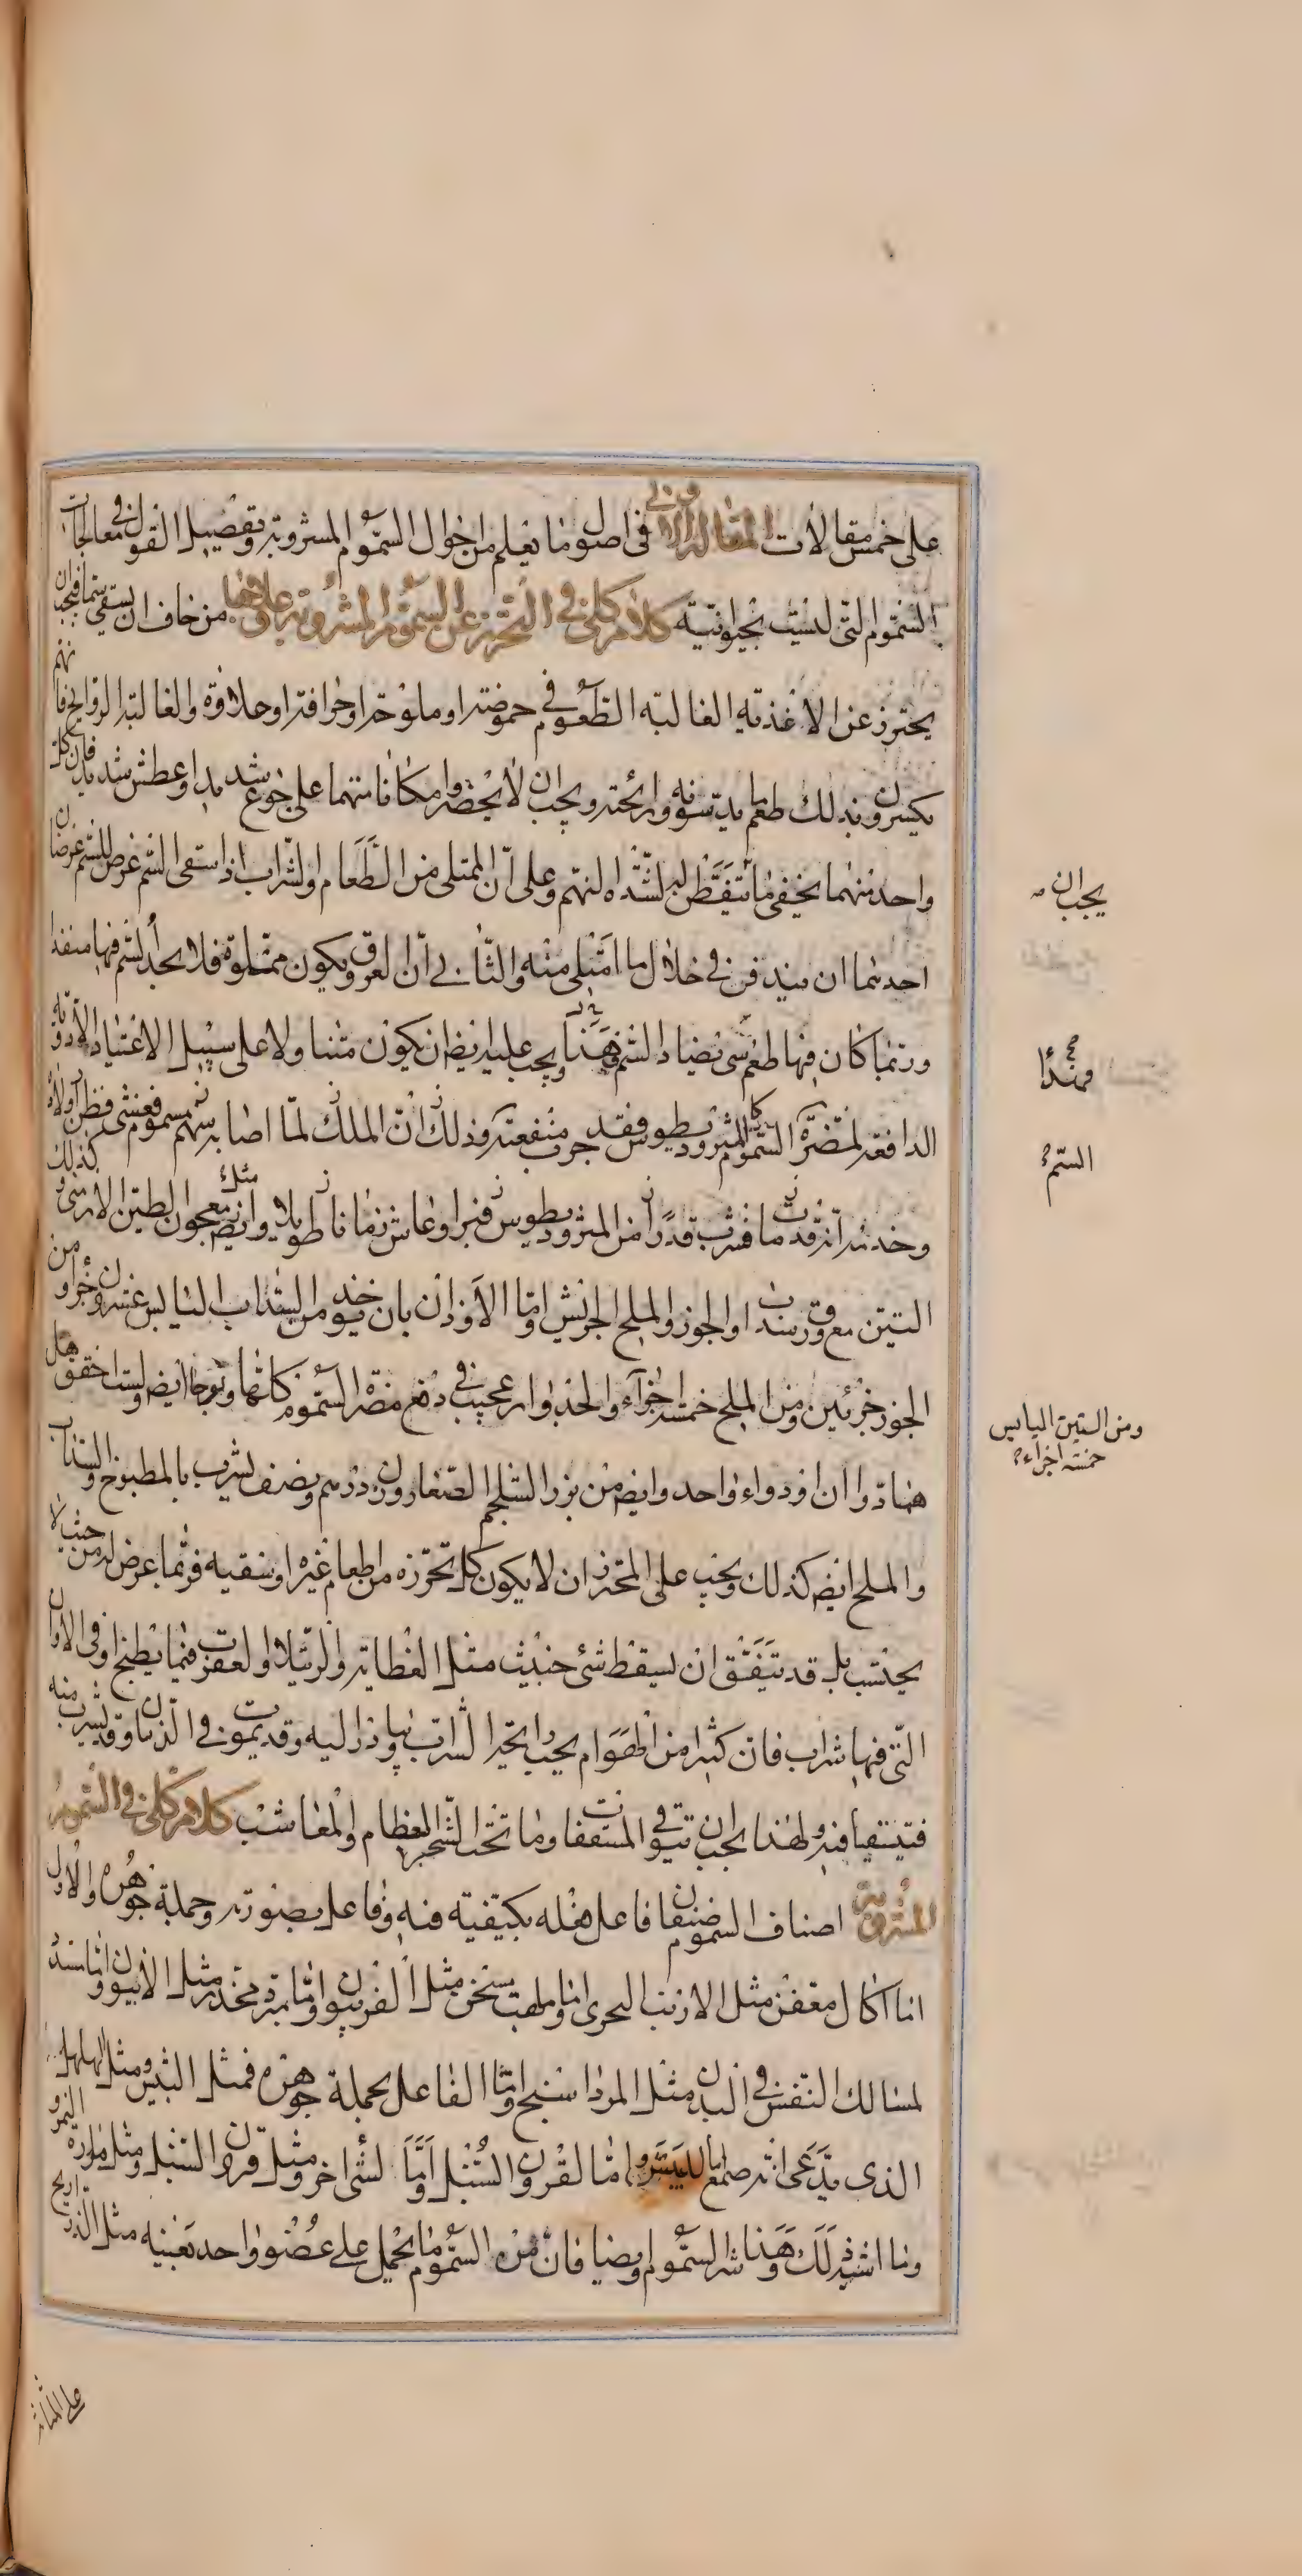 على خمس مقالات المقالة الاولى فى اصول ما نعلم من احوال السموم المشروبة وتفصيل القول فى معالجات
السموم التى ليست بحيوانية كلام كلى فى التحرز عن السموم المشروبة وعلاجها من خاف ان يسقى سما فيجب ان
يحترز عن الاغذيه الغالبه الطعوم فى حموضة او ملوحة او حرافة او حلاوة والغالبة الروايح فانهم
يكسرون بذلك طعم ما يدسونه ورائحته ويجب ان لا يحضروا مكانا متهما على جوع شديد او عطش شديد فان كل
واحد منهما يخفى ما يتفقظ له لشداه النهم وعلى ان الممتلى من الطعام او الشراب اذا سقى السم عرض للسم عرضان
احدهما ان يندفن فى خلال ما امتلى منه والثانى ان العروق يكون ممتلوة فلا يجد السم فيها منفذا
وربما كان فيها طعم شى يضاد السم فهذا ويجب عليه ايضا ان يكون متناولا على سبيل الاعتياد الادويه
الدافعة لمضرة السموم كالمثروديطوس فقد جرب منفعته وذلك ان الملك لما اصابه سهم مسموم فعشى فظن اولا
وحدس انه قد مات فشرب قدرا من المثروديطوس فبرا وعاش زمانا طويلا وايضا مثل معجون الطين الارمنى وكذلك
التين مع ورق سداب او الجوز والملح الجريش واما الاوزان بان خذ من السداب اليابس عشرون جزا ومن
الجوز جزئين ومن الملح خمسة اجزاء والجدوار عجيب فى دفع مضرة السموم كلها وتوحا ايضا ولست احقق هل
هما دوا ان او دواء واحد وايضا من بزر الشلجم الصغار وزن درهم ونصف يشرب بالمطبوخ والسداب
والملح ايضا كذلك ويجب على المتحرز ان لا يكون كل تحرزه من اطعام غيره او سقيه فربما عرض له من حيث لا
يحتسب بل قد يتفق ان يسقط شئ خبيث مثل العظاية والرتيلا والعقرب فيما يطبخ او فى الاوانى
التى فيها شراب فان كثيرا من الهوام يحب رايحة الشراب ويبادر اليه وقد يموت فى الدنان وقد يشرب منه
فيتقيا فيه ولهذا يجب ان يتوقى المستعفات وما تحت الشجر العظام والمعاشب كلام كلى فى السموم
المشروبة اصناف السموم صنفان فاعل فعله بكيفيه فيه وفاعل بصورته وجملة جوهره والاول
اما اكال معفن مثل الارنب البحرى واما ملهب مسخن مثل الفربيون واما مبرد مخدر مثل الافيون واما مسدد
لمسالك التنفس فى البدن مثل المرداسنج واما الفاعل بجملة جوهره فمثل البيش ومثل الهلهل
الذى يدعى انه صمغ اما للبيش واما لقرون السنبل واما لشى اخر ومثل قرون السنبل ومثل مرارة النمر
وما اشبه ذلك وهذا شر السموم وايضا فان من السموم ما يحمل على عضو واحد بعينه مثل الذراريح
يجب ان
فهذا صح
السم
ومن التين اليابس
خمسة اجزاء
على المثانة